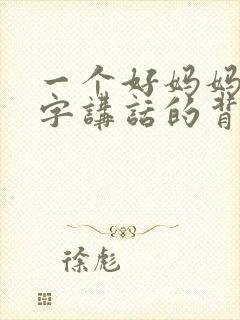 一个好妈妈
字講話的背
徐彪